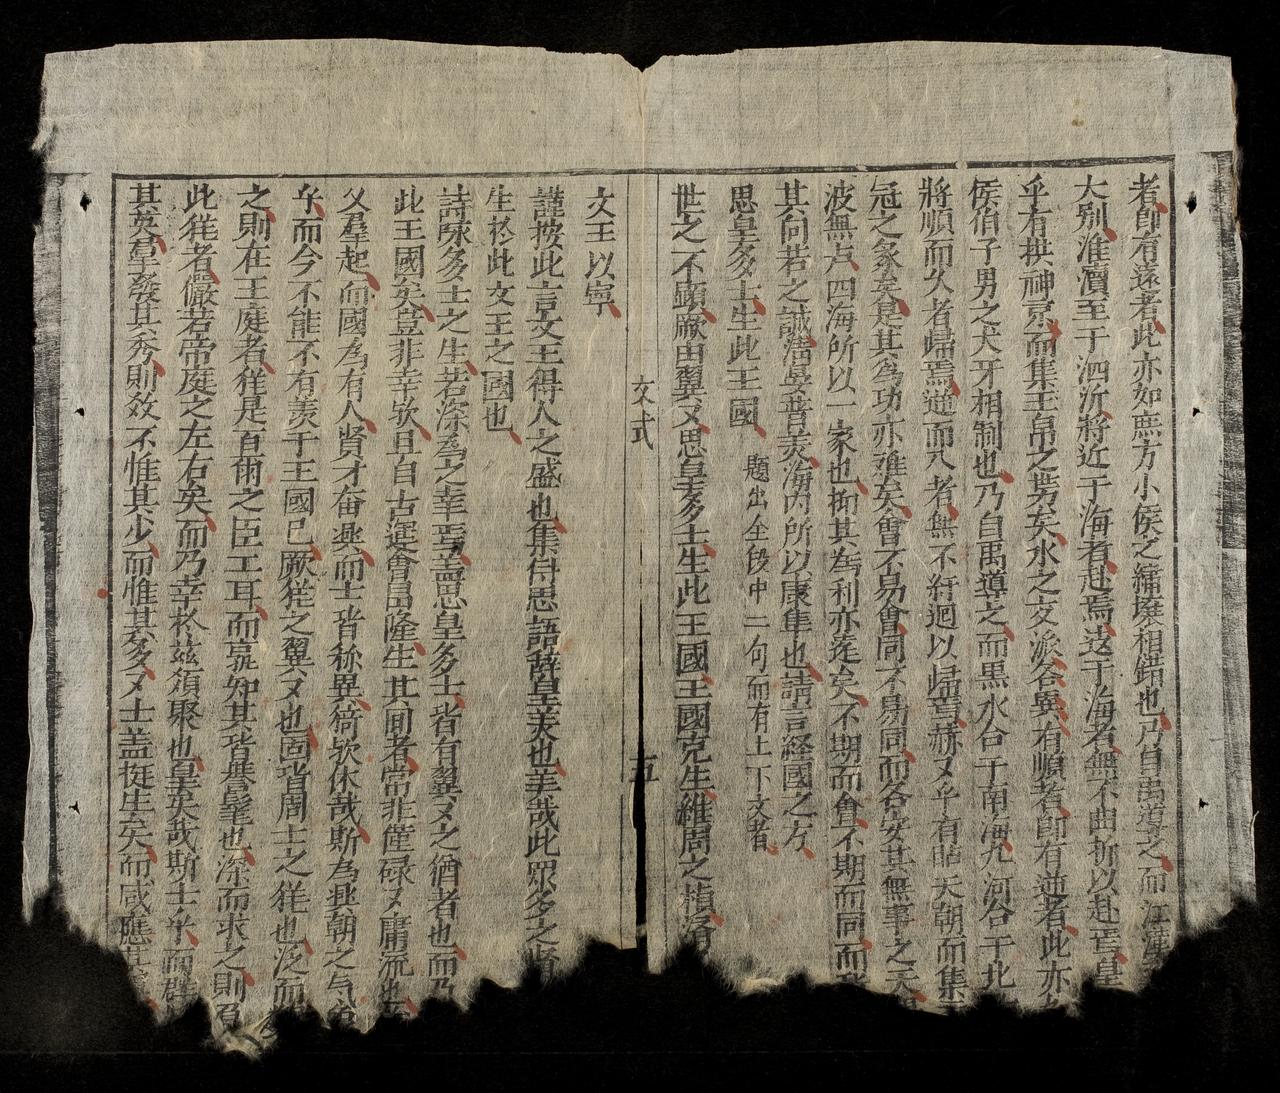 者即有遠者此亦如庶方小侯之繡壤相錯也乃自禹導之而江漢
大別淮瀆至于泗沂將近于海者赴焉遠于海者無不曲折以赴焉皇
乎有拱神京而集玉帛之勢矣水之支派各異有順者即有逆者此亦
侯伯子男之犬牙相制也乃自禹導之而黒水合于南海九河合于北
將順而入者歸焉逆而入者無不紆迴以歸焉赫〻乎有朝天朝而集
冠之象矣是其為功亦难矣會不易會同不易同而各安其無事之天
波無点四海所以一家也抑其為利亦逺矣不期而會不期而同而
其向若之誠清晏普美海内所以康隼也請言経國之方
思皇多士生此王國 題出全段中二句而有上下文者
世之不顕厥由翼〻思皇多士生此王國王國克生維周之楨濟
文式
五
文王以寧
謹按此言文王得人之盛也集傳思語辞皇美也羙哉此眾多之賢
生於此文王之國也
詩咏多士之生若深為之幸焉盖思皇多士皆有翼〻之猶者也而乃
此王國矣豈非幸欤且自古運會昌隆生其间者常非僅碌〻庸流也
父羣起而國為有人賢才奋興而士皆称異猗欤休哉斯為興朝之气
乎而今不能不有羨于王國已厥猶之翼〻也固皆周士之猶也泛而
之則在王庭者猶是自爾之臣工耳而孰知其皆譽髦也深而求之則
此猶者儼若帝庭之左右矣而乃幸於兹須聚也皇矣哉斯士乎而群
其英羣發其秀則效不惟其少而惟其多〻士盖挺生矣而咸應其